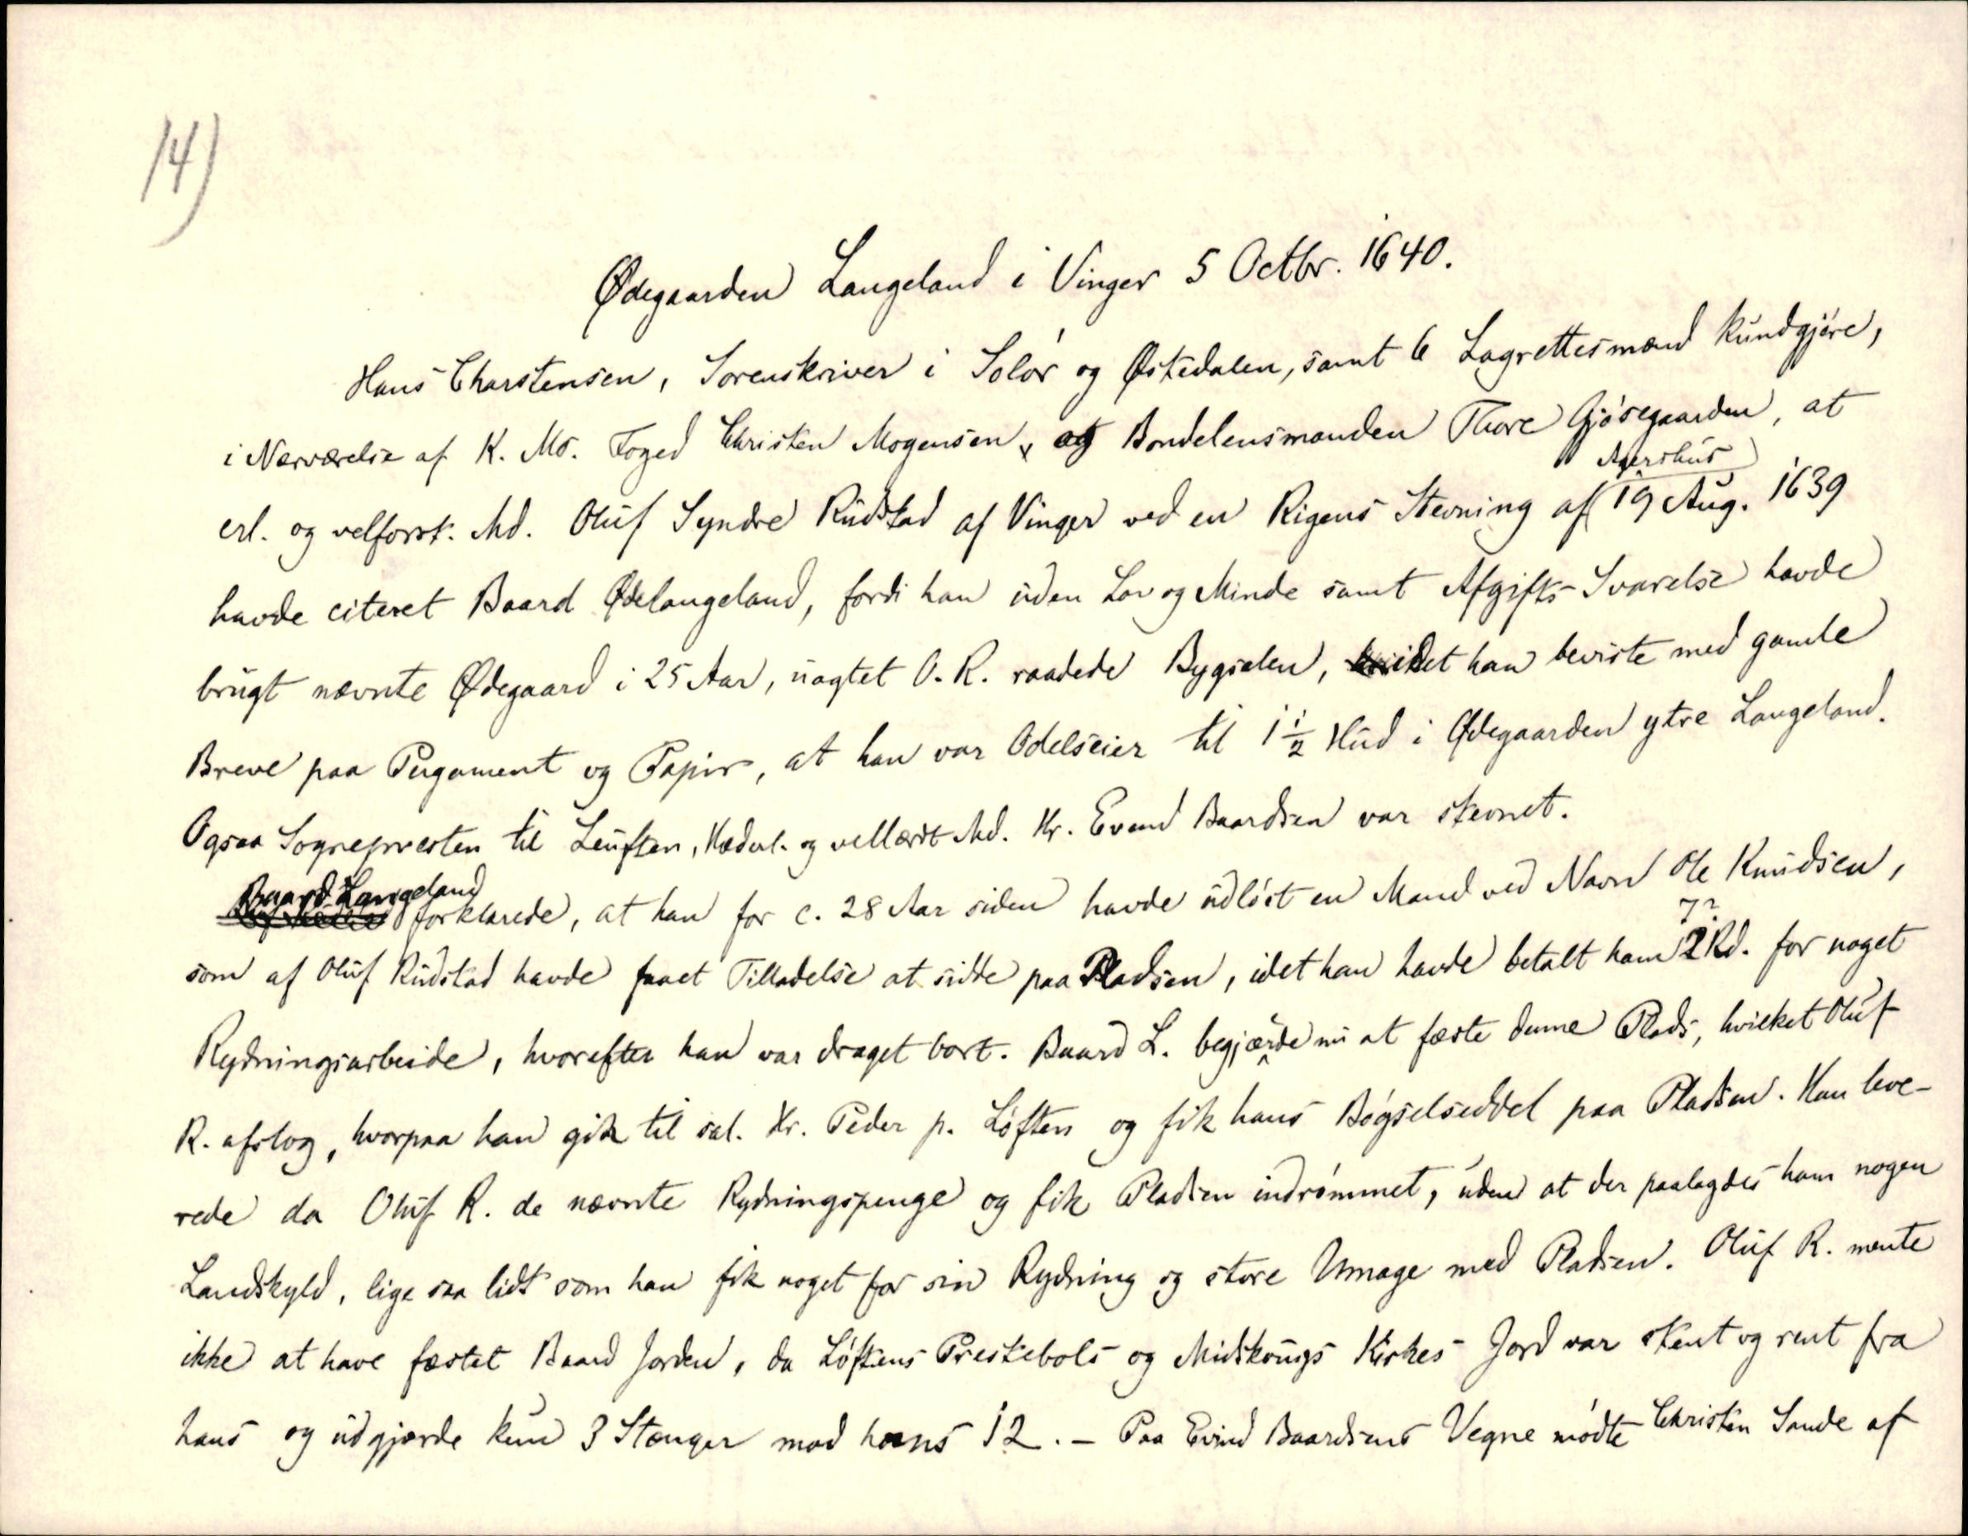 14)
Ødegaarden Langeland i Vinger 5 Octbr. 1640.
Hans Charstensen, Sorenskriver i Solør og Østedalen, samt 6 Lagrettesmænd kundgjøre,
i Nærværelse af K. Ms. Foged Christen Mogensen, og Bondelensmanden Thore Gjøsegaarden, at
Agershus
erl. og velforst. Md. Oluf Syndre Rudstad af Vinger ved en Rigens Stevning af 19 Aug. 1639
havde citeret Baard Ødelangeland, fordi han uden Lov og Minde samt Afgifts-Svarelse havde
brugt nævnte Ødegaard i 25 Aar, uagtet O. R. raadede Bygselen, idet han beviste med gamle
Breve paa Pergament og Papir, at han var Odelseier til 1 1/2 Hud i Ødegaarden ytre Langeland.
Ogsaa Sognepresten til Leuften, Hæderl. og vellærdt Md. Hr. Evend Baardsen var stevnet.
Baard Langeland
forklarede, at han for c. 28 Aar siden havde udløst en Mand ved Navn Ole Knudsen,
7?
som af Oluf Rudstad havde faaet Tilladelse at sidde paa Pladsen, idet han havde betalt ham 2 Rd. for noget
Rydningsarbeide, hvorefter han var draget bort. Baard L. begjærde nu at fæste denne Plads, hvilket Oluf
R. afslog, hvorpaa han gik til sal. Hr. Peder p. Løften og fik hans Bøgselseddel paa Pladsen. Han leve-
rede da Oluf R. de nævnte Rydningspenge og fik Pladsen indrømmet, uden at der paalagdes ham nogen
Landskyld, lige saa lidt som han fik noget for sin Rydning og store Umage med Pladsen. Oluf R. mente
ikke at have fæstet Baard Jorden, da Løftens Prestebols og Midskougs Kirkes Jord var stent og rent fra
hans og udgjorde kun 3 Stænger mod hans 12. - Paa Evind Baardsens Vegne mødte Christen Sande af